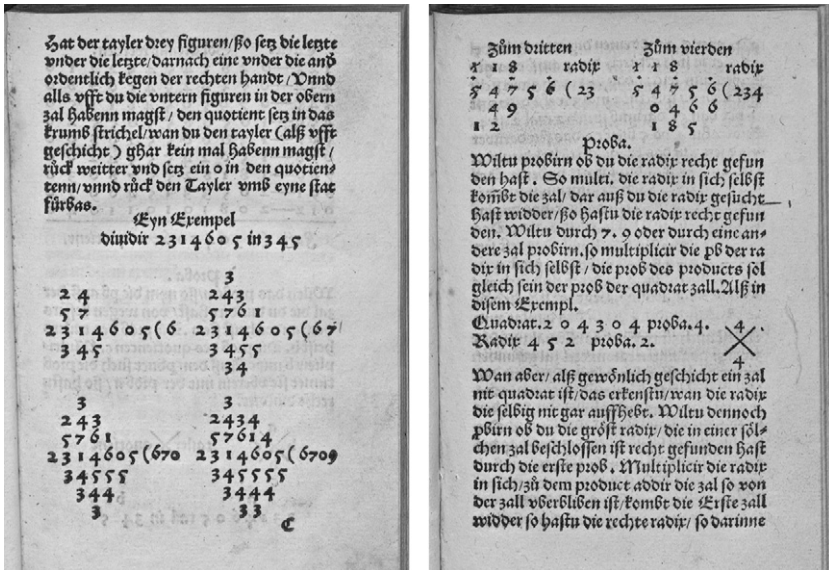 Hat der tayler drey figuren/ßo setz die letzte
vnder die letzte/darnach eine vnder die and̄
ordentlich kegen der rechten handt/Vnnd
alls vfft du die vntern figuren in der obern
zal habenn magst/den quotient setz in das
krumb strichel/wan du den tayler (alß vfft
geschicht) ghar kein mal habenn magst/
rück weitter vnd setz ein o in den quotien-
tenn/vnnd rück den Tayler vmb eyne stat
fürbas.
Eyn Exempel
diuidir 2314605 in 345
3
24 243
57 5761
2314605(6 2314605(67
345 3455
34
3 3
243 2434
5761 57614
2314605(670 2314605(6709
34555 345555
344 3444
3 33
C
Züm dritten Züm vierden
118 radix 118 radix
54756(23 54756(234
49 0466
12 185
Proba.
Wiltu probirn ob du die radix recht gefun
den hast. So multi. die radix in sich selbst
kombt die zal/dar auß du die radix gesucht
hast widder/ßo hastu die radix recht gefun
den. Wiltu durch 7. 9 oder durch eine an-
dere zal probirn. so multiplicir die pb der ra
dix in sich selbst/die prob des products sol
gleich sein der prob der quadrat zall. Alß in
disem Exempl.
Quadrat. 204304 proba. 4. 4 .
Radix 452 proba. 2.
4
Wan aber/alß gewönlich geschicht ein zal
nit quadrat ist/das erkenstu/wan die radix
die selbig nit gar auffhebt. Wiltu dennoch
pbirn ob du die gröst radix/die in einer söl-
chen zal beschlossen ist recht gefunden hast
durch die erste prob. Multiplicir die radix
in sich/zů dem product addir die zal so von
der zall vberbliben ist/kombt die Erste zall
widder so hastu die rechte radix/so darinne